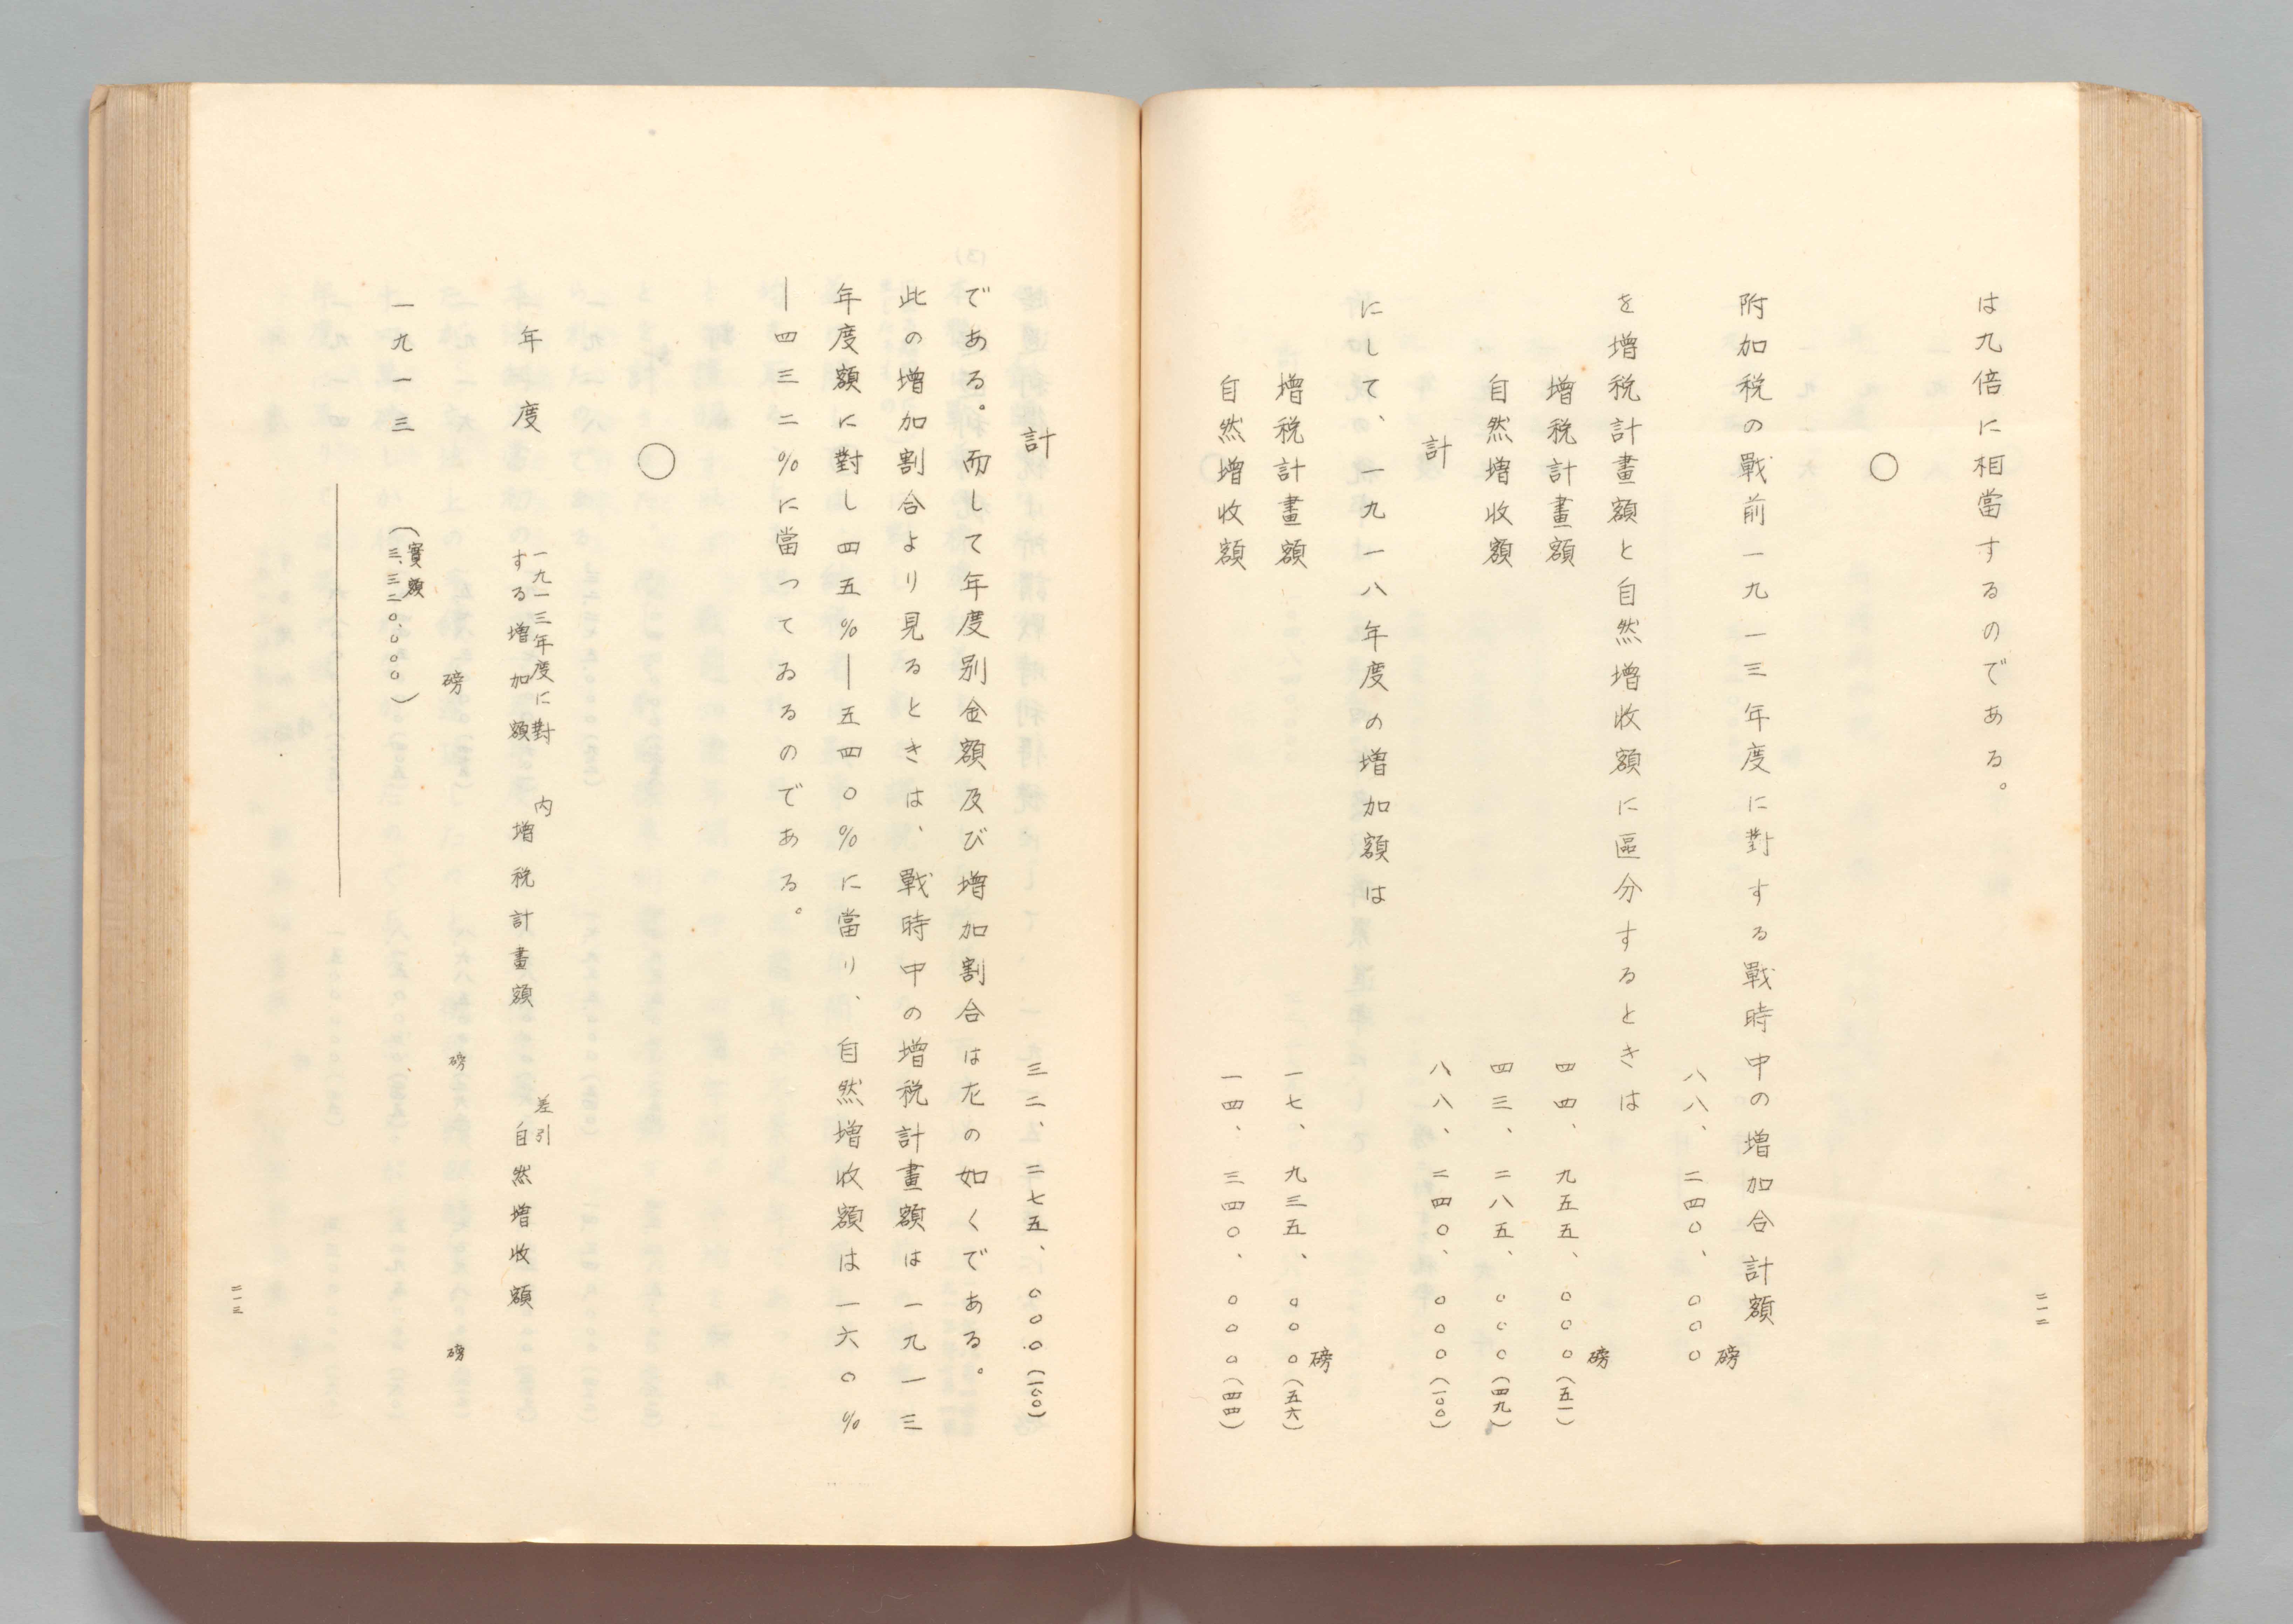 は九倍に相當するのである。
○
附加税の戰前一九一三年度に對する戰時中の增加合計額
磅
八八、二四〇、〇〇〇
を增税計畫額と自然增收額に區分するときは
磅
增税計畫額 四四、九五五、〇〇〇(五一)
自然增收額 四三、二八五、〇〇〇(四九)
計 八八、二四〇、〇〇〇(一〇〇)
にして、一九一八年度の增加額は
磅
增税計畫額 一七、九三五、〇〇〇(五六)
自然增收額 一四、三四〇、〇〇〇(四四)
二一二
計 三二、二七五、〇〇〇(一〇〇)
である。而して年度別金額及び增加割合は左の如くである。
此の增加割合より見るときは、戰時中の增税計畫額は一九一三
年度額に對し四五%—五四〇%に當り、自然增收額は一六〇%
—四三二%に當つてゐるのである。
○
年度 一九一三年度に對する增加額 内增税計畫額 差引自然增收額
磅 磅 磅
一九一三 (實額三、三二〇、〇〇〇)
二一三